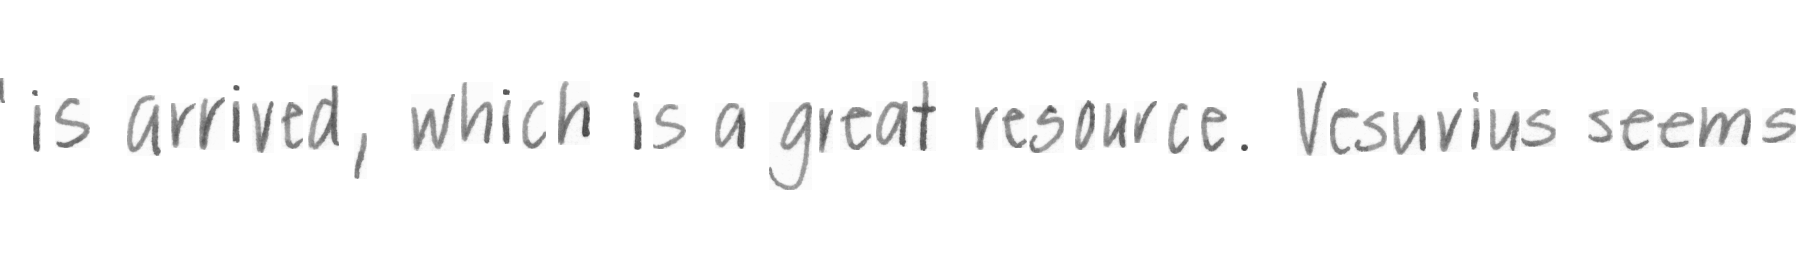 is arrived, which is a great resource. Vesuvius seems